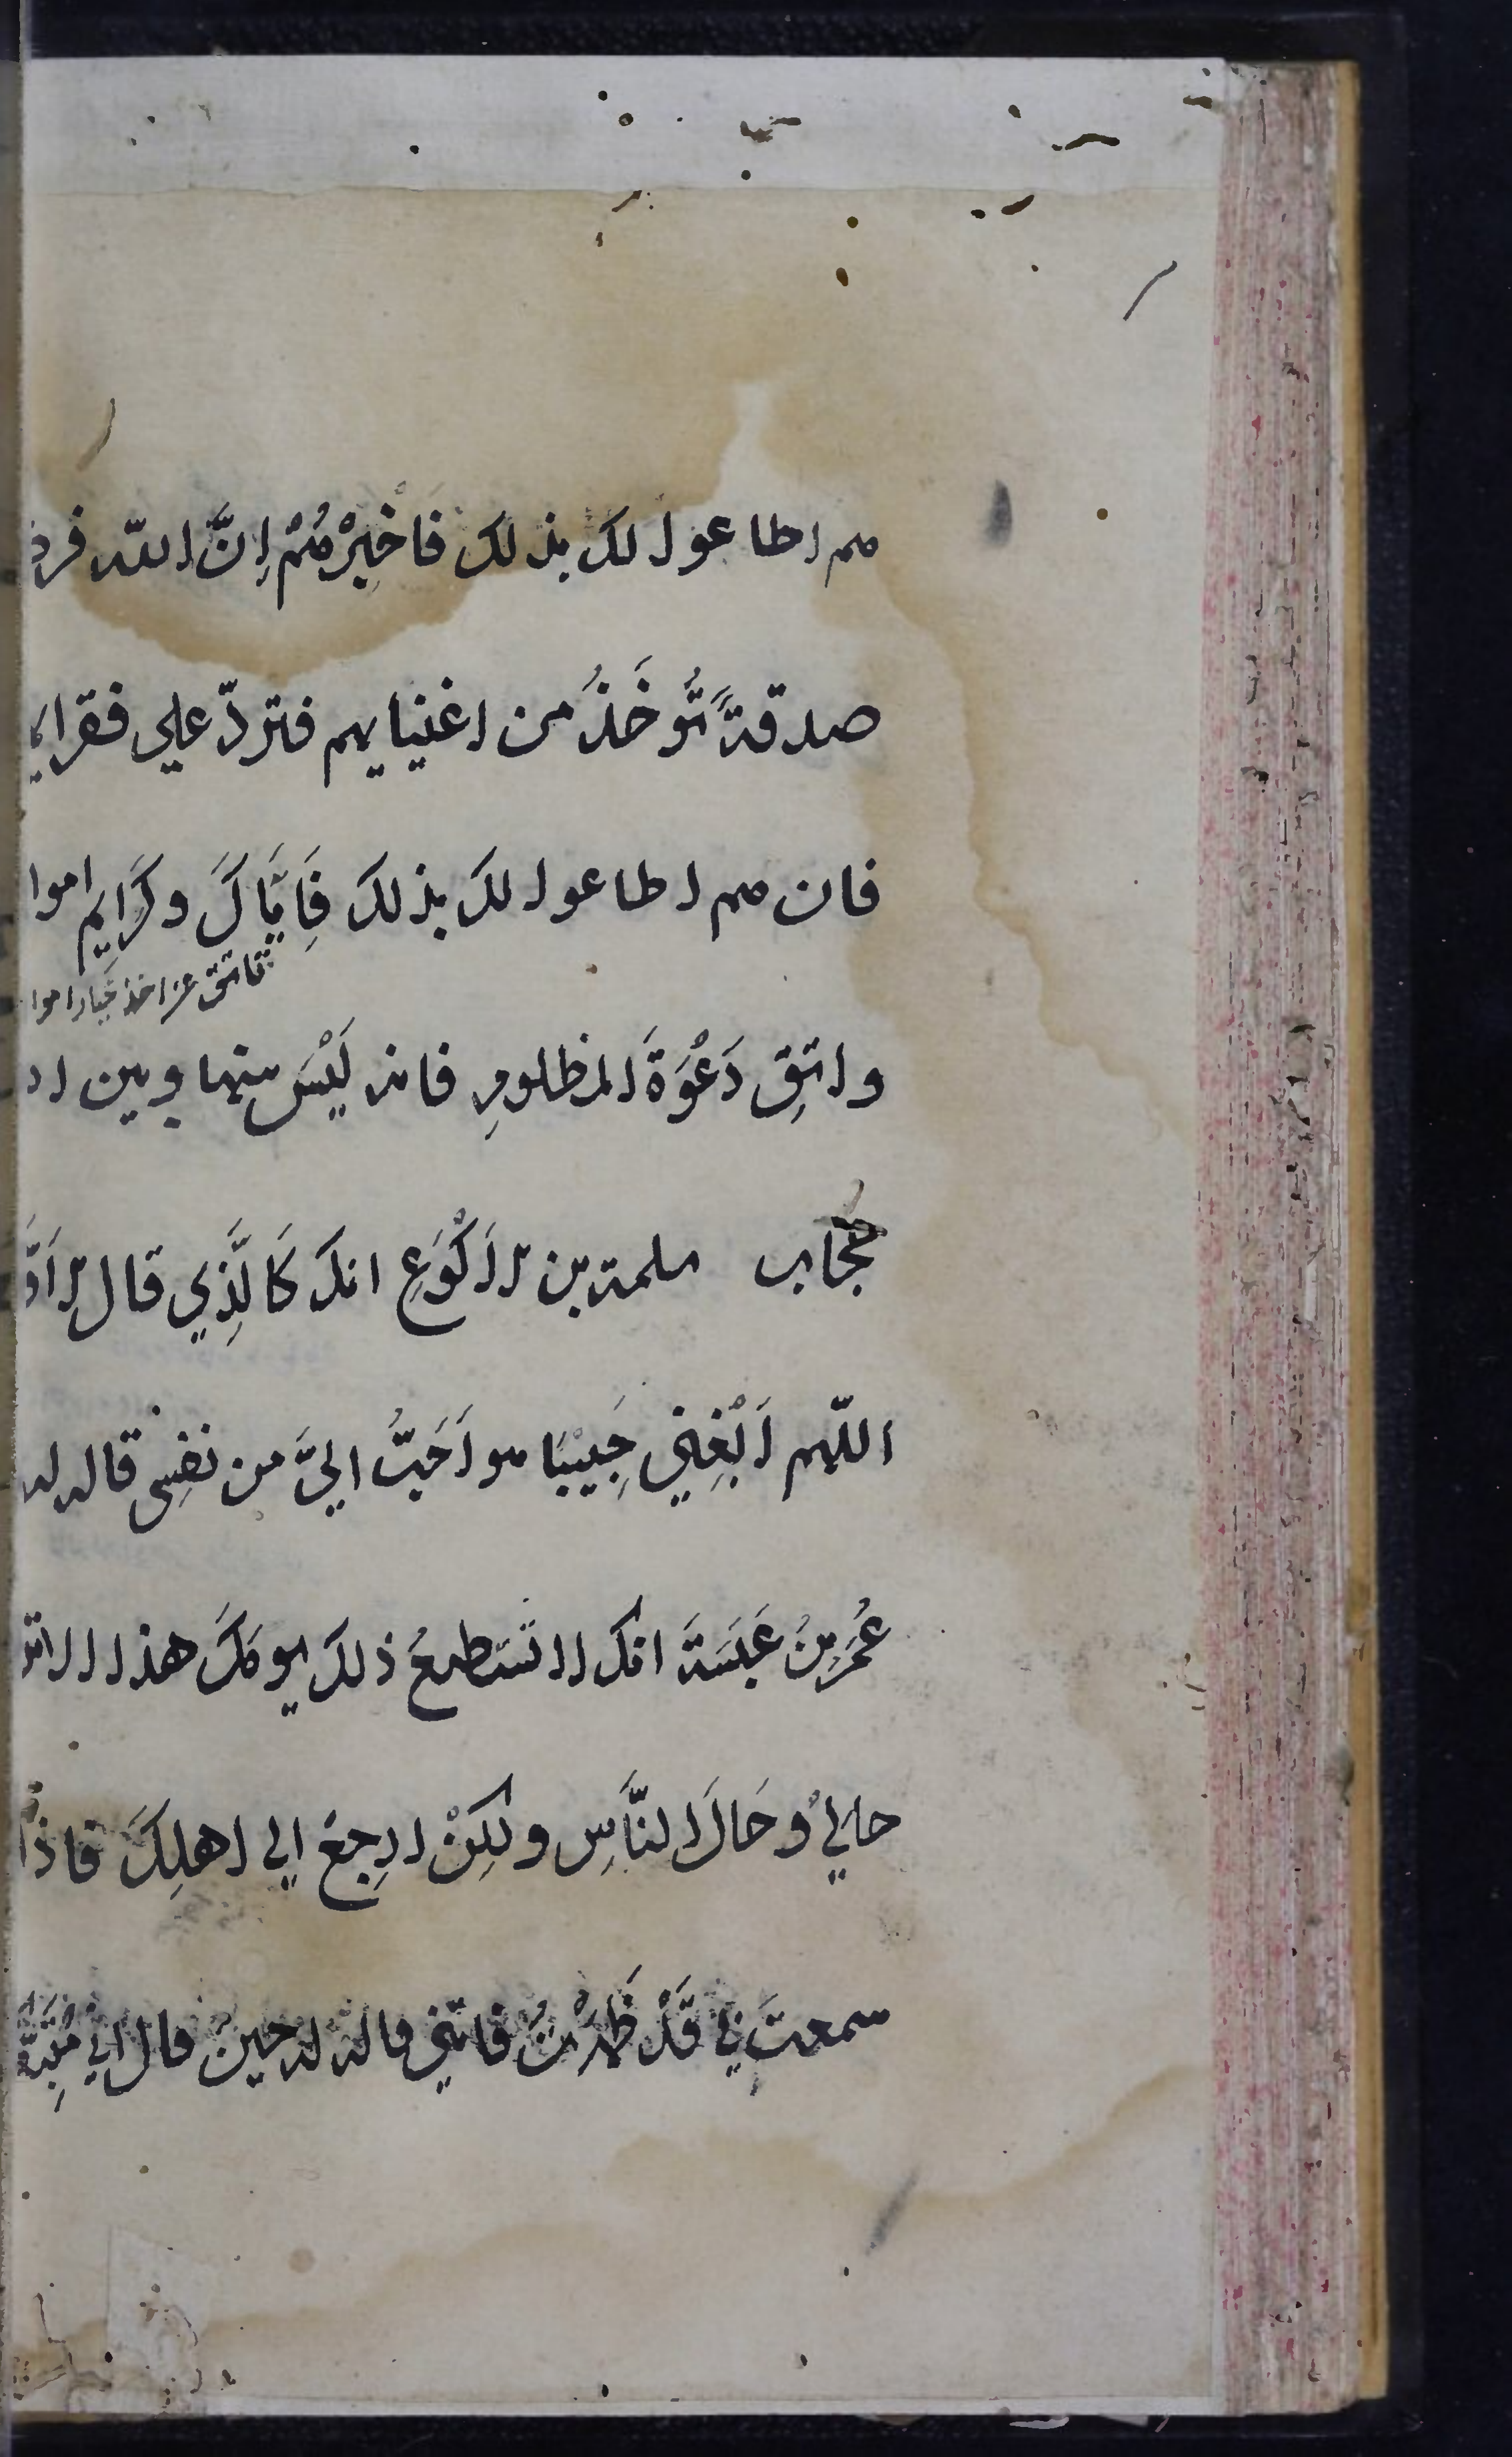 هم اطاعوا لك بذلك فَاَخْبِرْهُمْ اِنَّ اللّه فرض
صدقةً تُوخَذُ من اغنيايهم فتردّ علي فقرايـ
فان هم اطاعوا لك بذلك فَاِيَّاكَ وكَرَايِم اموا
فاتق عن اخذ خيار اموا
واتقِ دَعْوَةَ المظلومِ فانه لَيْسَ بينها وبين ا
حجاب سلمة بن الاَكْوَعِ انك كَالَّذِي قال الاَوَّ
اللّهم اَبْغِنِي حَبِيبًا هو اَحَبُّ اِلَيَّ من نفسِي قاله له
عُمَرِ بنُ عَبَسَةَ انك لا تَسْتَطيعُ ذلك يومَكَ هذا الا تر
حالي وحَالَ النَّاسِ ولكِنْ ارجِعْ الي اهلِكَ فاذا
سمعتَ بِي قَدْ ظَهَرْتُ فَاتني قاله له حين قال اني مُتَّبِعُكَ